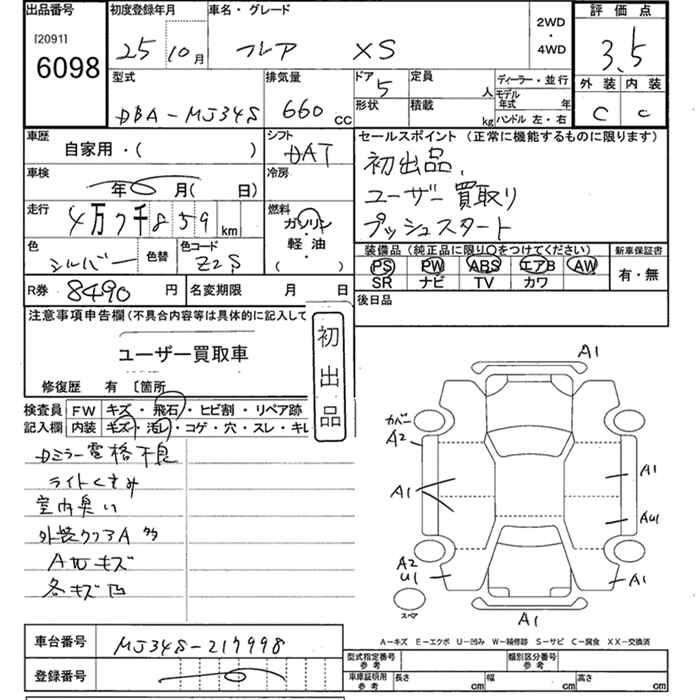 出品番号
[2091]
6098
初度登録年月
25 10月
車名・グレード
フレア XS
2WD
・
4WD
評価点
3.5
外装 内装
C C
型式
DBA-MJ34S
排気量
660 cc
ドア
5
形状
定員
人
積載
kg
ディーラー・並行
モデル年式 年
ハンドル 左・右
車歴
自家用・( )
シフト
DAT
セールスポイント (正常に機能するものに限ります)
初出品、
ユーザー買取り
プッシュスタート
車検
年 月( 日)
冷房
走行
4万7千859 km
燃料
ガソリン
軽油
( )
色
シルバー
色替
色コード
Z2S
装備品(純正品に限り〇をつけてください)
PS PW ABS エアB AW
SR ナビ TV カワ
新車保証書
有・無
R券 8490 円
名変期限 月 日
後日品
注意事項申告欄(不具合内容等は具体的に記入して
ユーザー買取車
修復歴 有 〔箇所
初出品
検査員
記入欄
FW キズ・飛石・ヒビ割・リペア跡
内装 キズ・汚レ・コゲ・穴・スレ・キレ
Dミラー電格不良
ライトくすみ
室内臭い
外装クリアA
AWキズ
各キズ凹
A1
カバー
A2
A1
A1
AU1
A2
U1
A1
スペア
A1
A-キズ E-エクボ U-凹み W-補修跡 S-サビ C-腐食 XX-交換済
車台番号
MJ34S-217998
登録番号
型式指定番号
参考
類別区分番号
参考
車庫証明用
参考
長さ cm
幅 cm
高さ cm